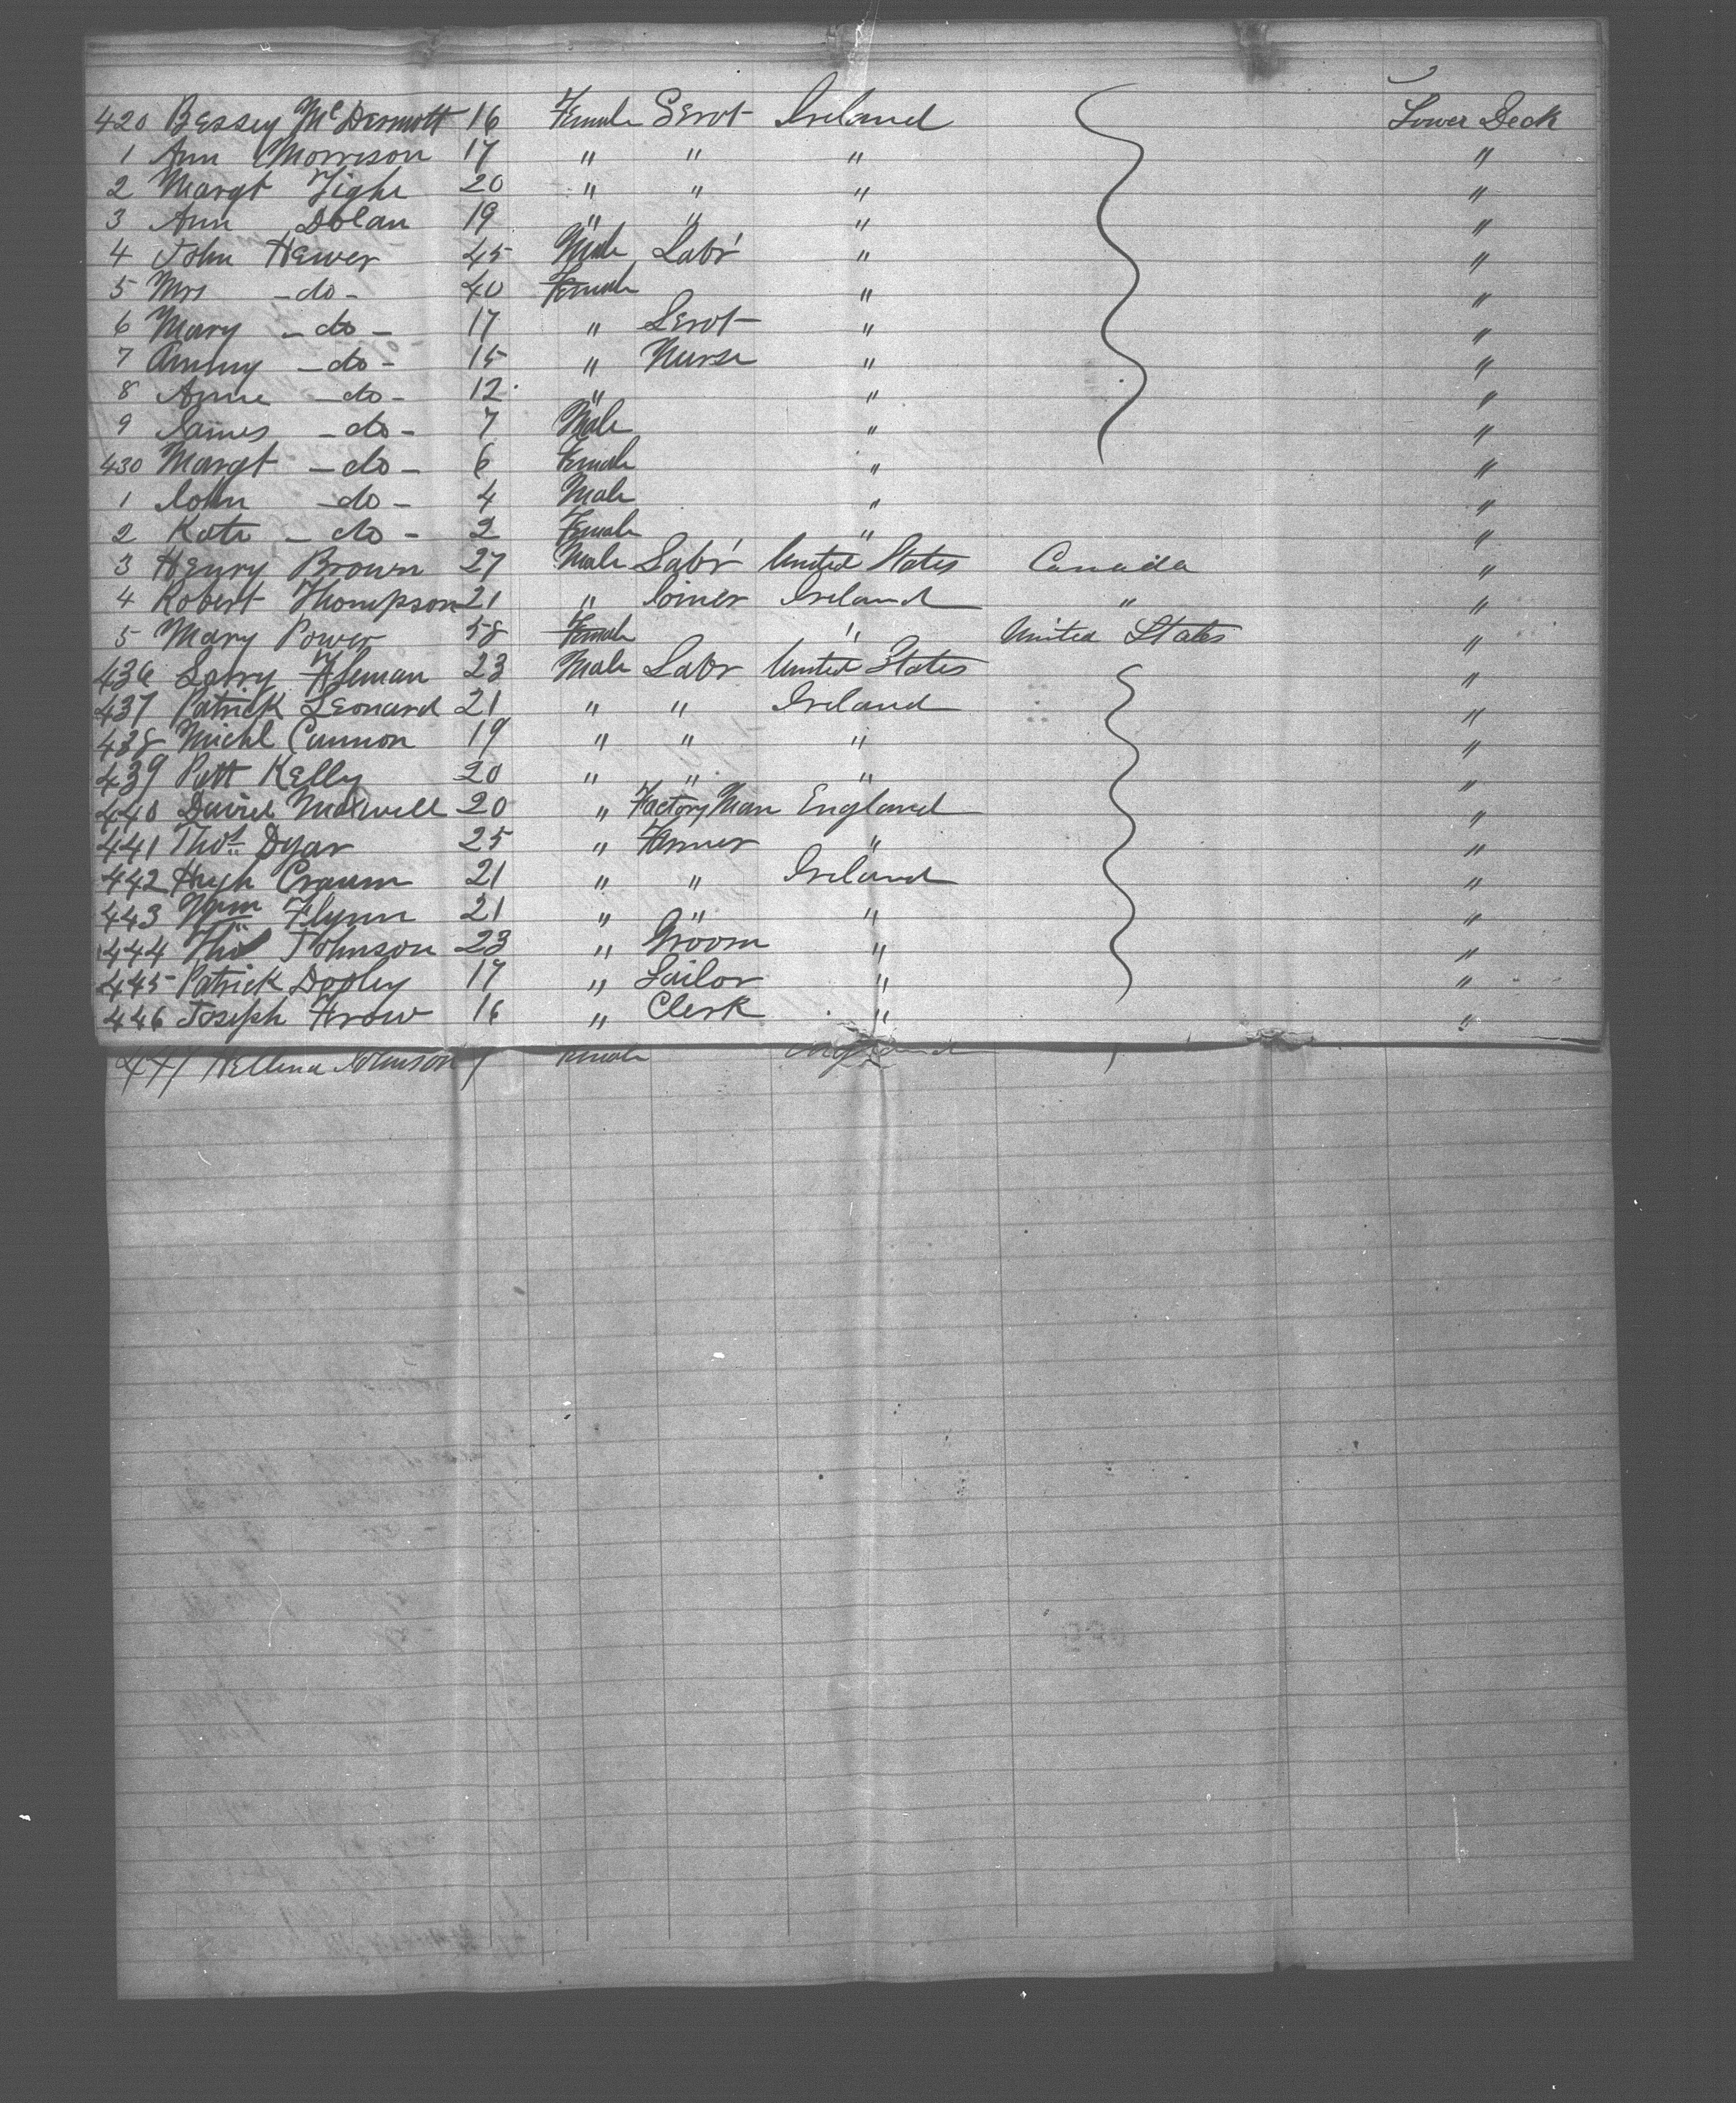 420 Bessey McDermott 16 Female Servt Ireland Lower Deck
1 Ann Morrison 17 " " " "
2 Margt Tighe 20 " " " "
3 Ann Dolan 19 " " " "
4 John Hewer 45 Male Labr " "
5 Mrs - do - 40 Female " "
6 Mary - do - 17 " Servt " "
7 - do - 15 " Nurse " "
8 Anne - do - 12 " " "
9 James - do - 7 Male " "
430 Margt - do - 6 Female " "
1 John - do - 4 Male " "
2 Kate - do - 2 Female " "
3 Henry Brown 27 Male Labr United States Canada "
4 Robert Thompson 21 " Joiner Ireland " "
5 Mary Power 58 Female " United States "
436 23 Male Labr United States "
437 Patrick Leonard 21 " " Ireland "
438 Michl Cannon 19 " " " "
439 Patt Kelly 20 " " " "
440 Daniel Maxwell 20 " Factory Man England "
441 Thos Dyar 25 " Farmer " "
442 Hugh 21 " " Ireland "
443 Wm Flynn 21 " " " "
444 Thos Johnson 23 " Groom " "
445 Patrick Dooley 17 " Sailor " "
446 Joseph 16 " Clerk " "
447 Hellena Johnson Female England